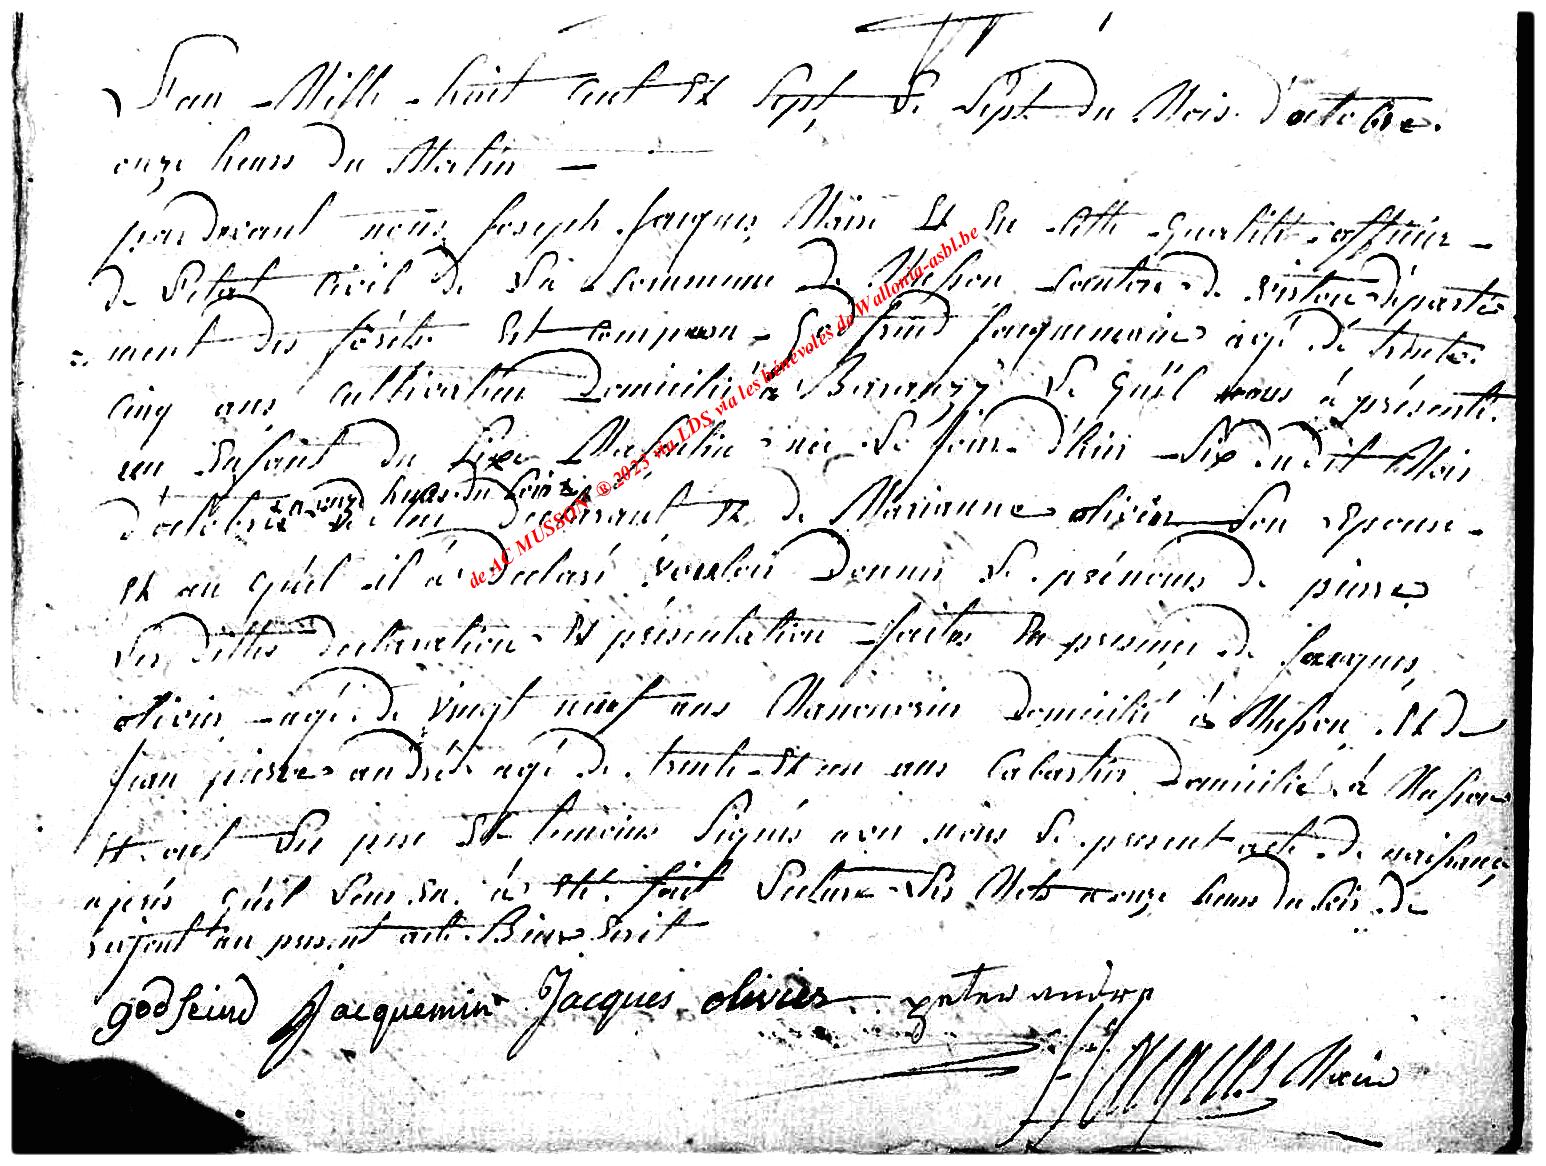 L'an Mille huit cent et sept, le sept du Mois d'octobre.
onze heurs du Matin —
pardevant nous Joseph Jacques, Maire et en cette qualité officier
de l'etat civil de la commune de Musson canton de virton départe-
= ment des forêts est comparu godfrind Jacquemain agé de trente
cinq ans cultivateur Domicilié à Baranzy le quel nous à présenté
un enfant du sixe Masculin né le jour d'hier six dudit Mois
d'octobre a onze heurs du soir de lui declarant et de Marianne olivier son epouse
et au quel il à declaré vouloir donner le prénoms de pierre
les dittes declaration et présentation faites en presence de Jacques
olivier agé de vingt neuf ans Manouvrier Domicilié à Musson et de
jean pierre andré agé de trente et un ans Cabartier Domicilié à Musson
et ont les pere et temoins signés avec nous le present acte de naissance
aprés qu'il leur en à eté fait lecture les Mots a onze heurs du soir de
rajout au present acte Bien
godfeind Jacquemin Jacques olivier peter andre
JJacques Maire
de AC MUSSON ® 2023 via LDS, via les bénévoles de Wallonia-asbl.be